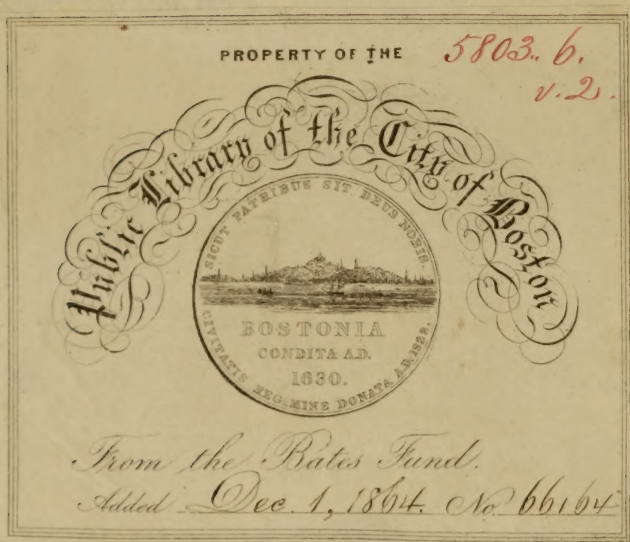 PROPERTY OF THE
5803.. 6.
v. 2.
Public Library of the City of Boston
SICUT PATRIBUS SIT DEUS NOBIS.
BOSTONIA
CONDITA A.D.
1630.
CIVITATIS REGIMINE DONATA A.D. 1822.
From the Bates Fund.
Added Dec. 1, 1864. No 66164